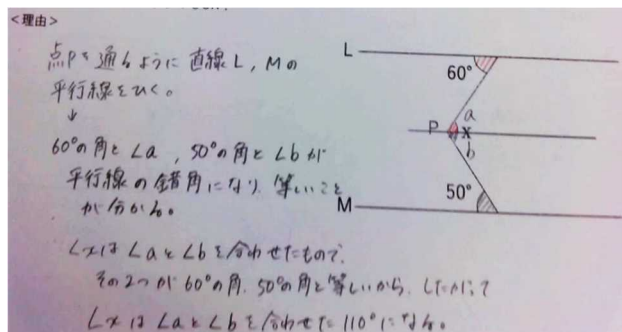 <理由>
点Pを通るように直線L, Mの
平行線をひく。
↓
60°の角と∠a , 50°の角と∠bが
平行線の錯角になり、等しいこと
が分かる。
∠xは∠aと∠bを合わせたもので、
その2つが60°の角、50°の角と等しいから、したがって
∠xは∠aと∠bを合わせた110°になる。
L
60°
a
P x
b
50°
M